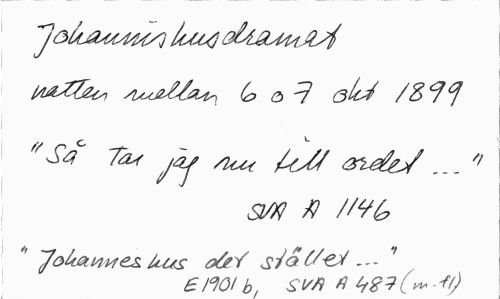 Johannishusdramat
natten mellan 6 o 7 okt 1899
"Så tar jag nu till ordet ..."
SVA A 1146
"Johanneshus det stället ..."
E1901b, SVA A 487 (m.fl)